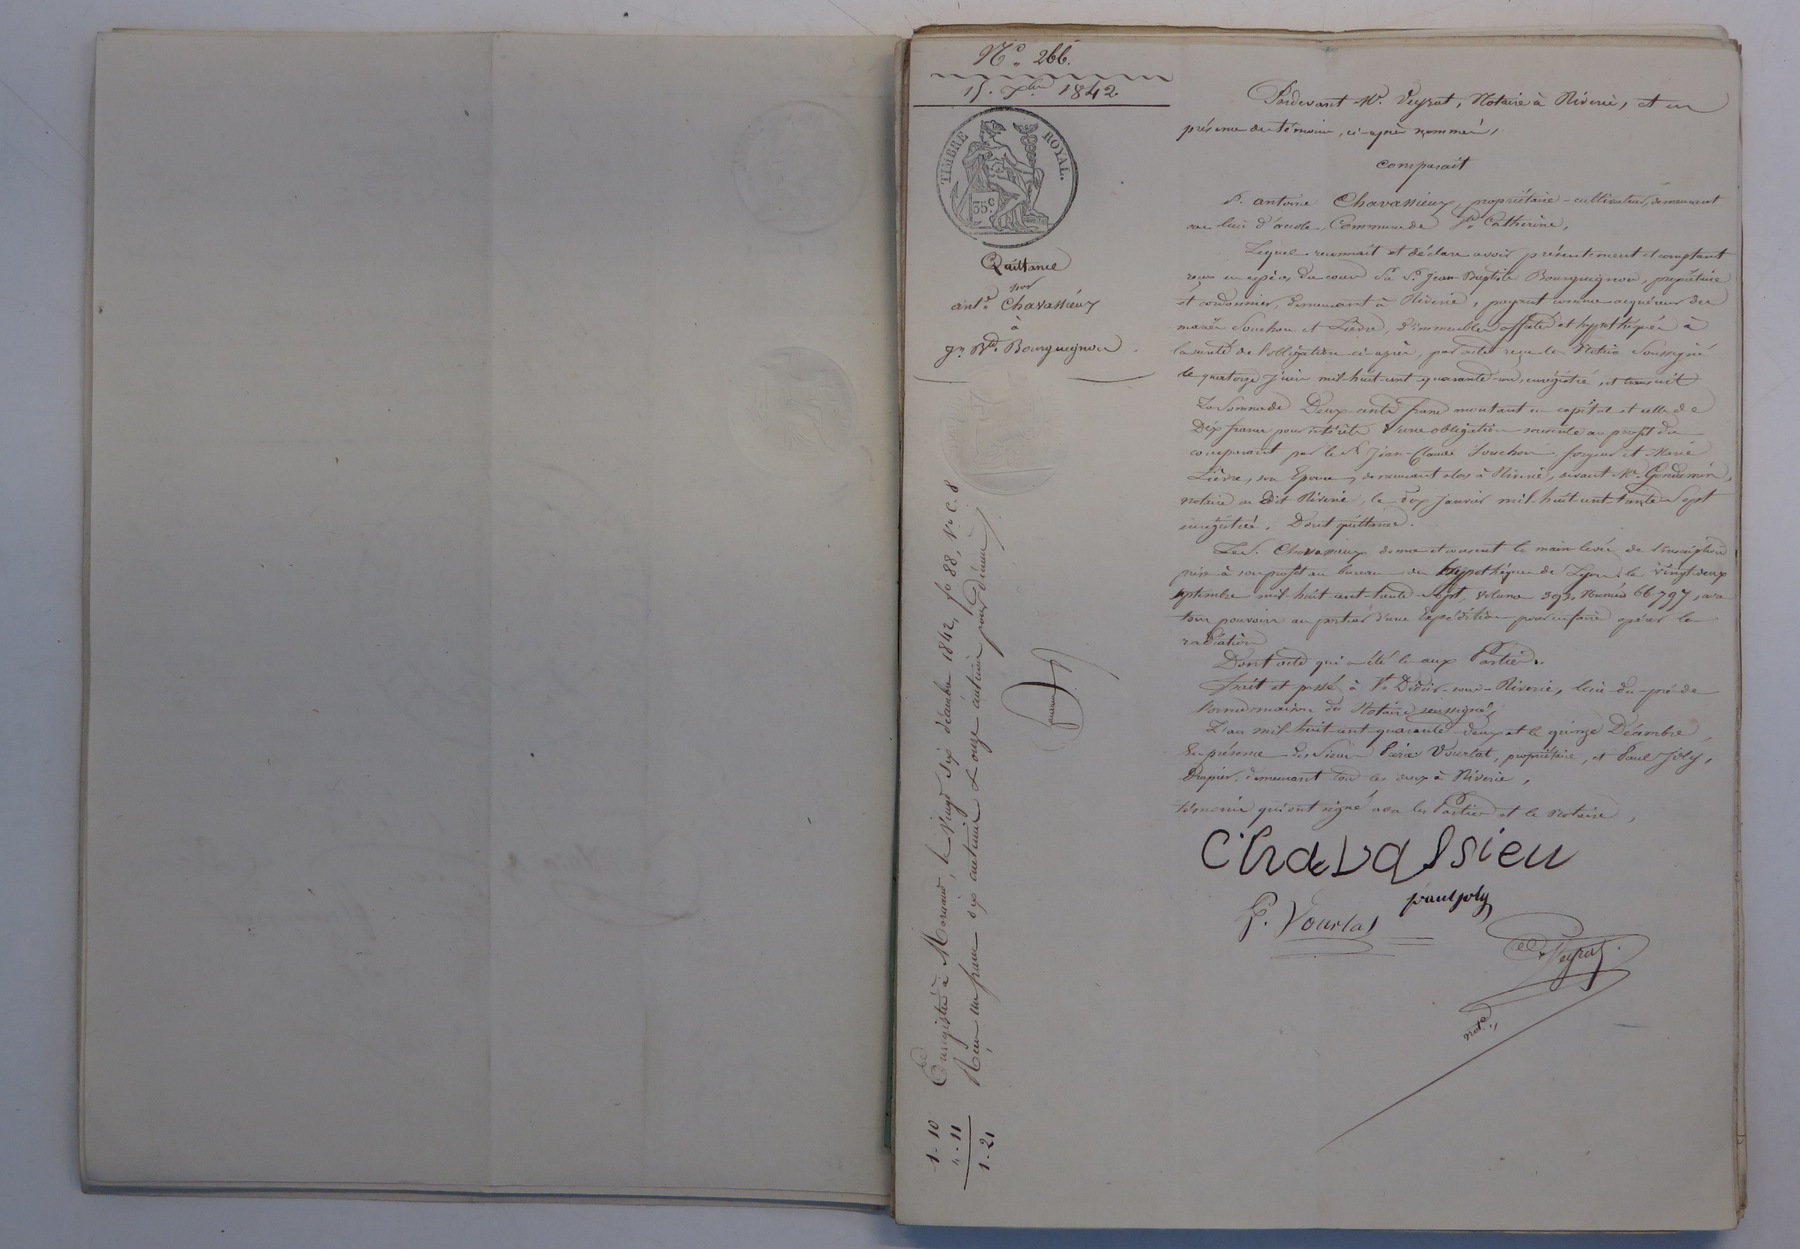 N° 266.
15. Xbre 1842.
TIMBRE ROYAL.
35 c.
Quittance
par
ant.e Chavassieux
à
Jn Bte. Bourguignon
Enregistré à Mornant, le vingt six décembre 1842, fo 88, Vo C. 8
Reçu un franc dix centimes & onze centimes pour décime.
1 - 10
" - 11
1 - 21
Pardevant Me. Veyrat, Notaire à Riverie, et en
présence des témoins, ci-après nommés,
comparait
S. antoine Chavassieux, propriétaire-cultivateur, demeurant
au lieu d', Commune de Ste. Catherine,
Lequel reconnait et déclare avoir présentement et comptant
reçu en espèces de cours du Sr. Jean Baptiste Bourguignon, propriétaire
et cordonnier, demeurant à Riverie, payant comme acquéreur des
mariés Souchon et Lièvre, d'immeubles affectés et hypothéqués à
la sureté de l'obligation ci-après, par acte reçu le Notaire Soussigné
le quatorze juin mil-huit-cent-quarante-un, enregistré, et transcrit
La Somme de Deux-cents francs montant en capital et celle de
Dix francs pour intérêts d'une obligation souscrite au profit du
comparant par le Sr. Jean-Claude Souchon, forgeur et Marie
Lièvre, son Epouse, demeurant alors à Riverie, devant Me. Gondamin,
notaire au Dit Riverie, le dix janvier mil-huit-cent-trente-Sept
enregistrée. Dont quittance.
Le S. Chavassieux donne et consent la main levée de l'inscription
prise à son profit au bureau des hypothèques de Lyon le vingt deux
septembre mil-huit-cent-trente-sept, volume 393. Numéro 66797, avec
tous pouvoirs au porteur d'une Expédition pour en faire opérer la
radiation.
Dont acte qui a été lu aux Parties.
Fait et passé à St. Didier-sous-Riverie, lieu du pré de
maison du Notaire soussigné,
L'an mil-huit-cent-quarante-deux et le quinze Décembre,
En présence des Sieurs Pierre Vourlat, propriétaire, et Paul Joly,
Drapier, demeurant tous les deux à Riverie,
témoins qui ont signé avec les Parties et le Notaire,
Chavassieu
paul joly
P. Vourlat
Veyrat
not.e